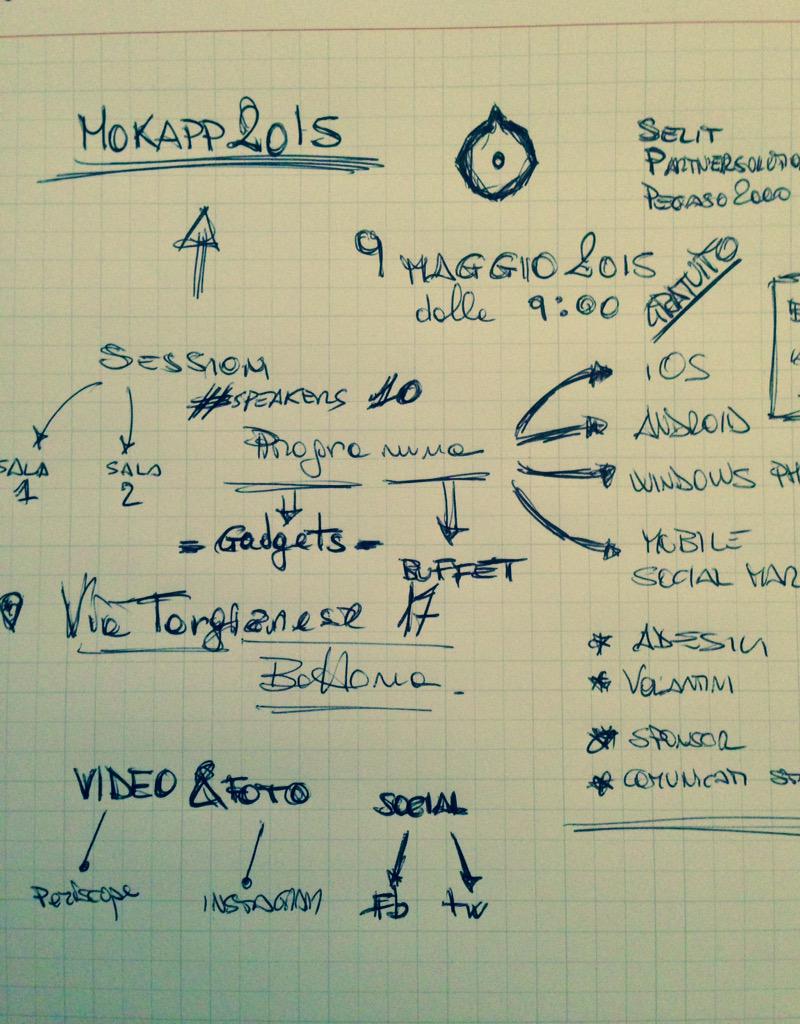 MOKAPP2015
SELIT
PARTNERSOLUTIO
PEGASO2000
9 MAGGIO 2015
dalle 9:00
GRATUITO
SESSIONI
#SPEAKERS 10
SALA 1
SALA 2
Programma
- Gadgets -
BUFFET
iOS
ANDROID
WINDOWS PH
MOBILE
SOCIAL MAR
Via Torgianese 17
Bettona
* ADESIVI
* VOLANTINI
* SPONSOR
* COMUNICATI ST
VIDEO & FOTO
SOCIAL
Periscope
INSTAGRAM
Fb
tw